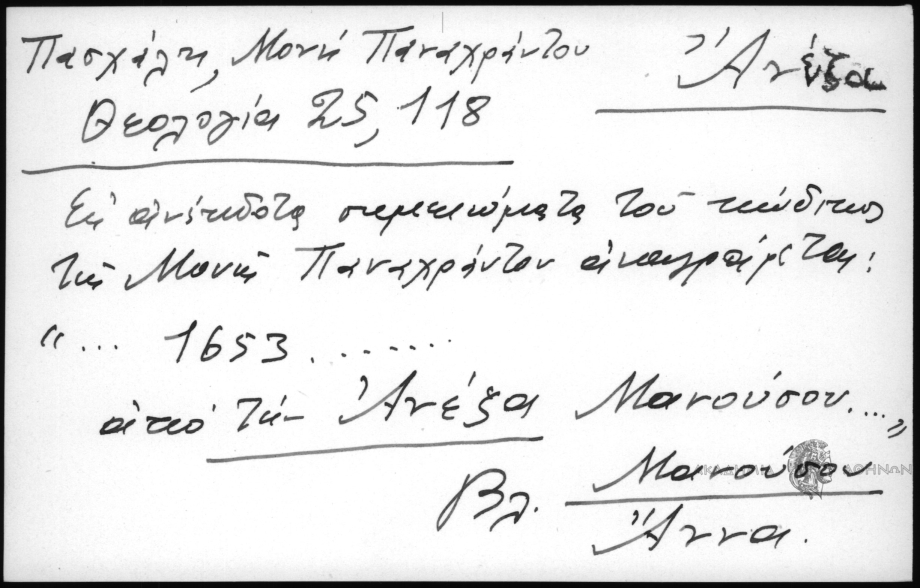 Πασχάλη, Μονή Παναχράντου
Ἀνέξα
Θεολογία 25, 118
Εἰς ἀνέκδοτα σημειώματα τοῦ κώδικος
τῆς Μονῆς Παναχράντου ἀναγράφεται:
“... 1653 ........
ἀπό τήν Ἀνέξα Μανούσου....”
Βλ. Μανούσου
Ἄννα.
ΑΚΑΔΗΜΙΑ ΑΘΗΝΩΝ